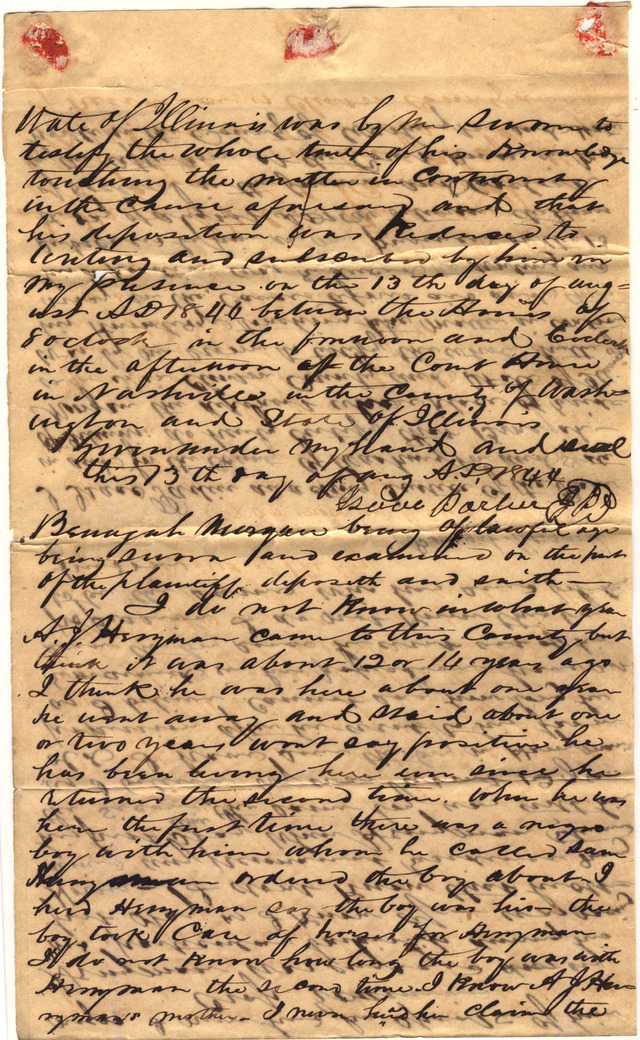 State of Illinois was by me sworn to
testify the whole truth of his Knowledge
touching the matter in Controversy
in the Cause aforesaid and that
his deposition was Reduced to
writing and subscribed by him in
my presence on the 13th day of aug-
ust AD 1844 between the Hours of
8 oclock in the forenoon and 6 oclock
in the afternoon at the Court House
in Nashville in the County of Wash-
ington and State of Illinois
Given under my hand and seal
this 13th day of aug AD 1844
Isaac Parker
Benajah Morgan being of lawful age
being sworn and examined on the part
of the plaintiff deposeth and saith—
I do not Know in what year
A. J Herryman came to this County but
think it was about 12 or 14 years ago
I think he was here about one year
he went away and staid about one
or two years wont say positive he
has been living here ever since he
returned the second time. When he was
here the first time there was a negro
boy with him whom he called Sam
Herryman ordered the boy about I
herd Herryman say the boy was his— the
boy took Care of horses for Herryman
I do not Know how long the boy was with
Herryman the second time. I Know A J Her-
ryman's mother— I never herd her claim the